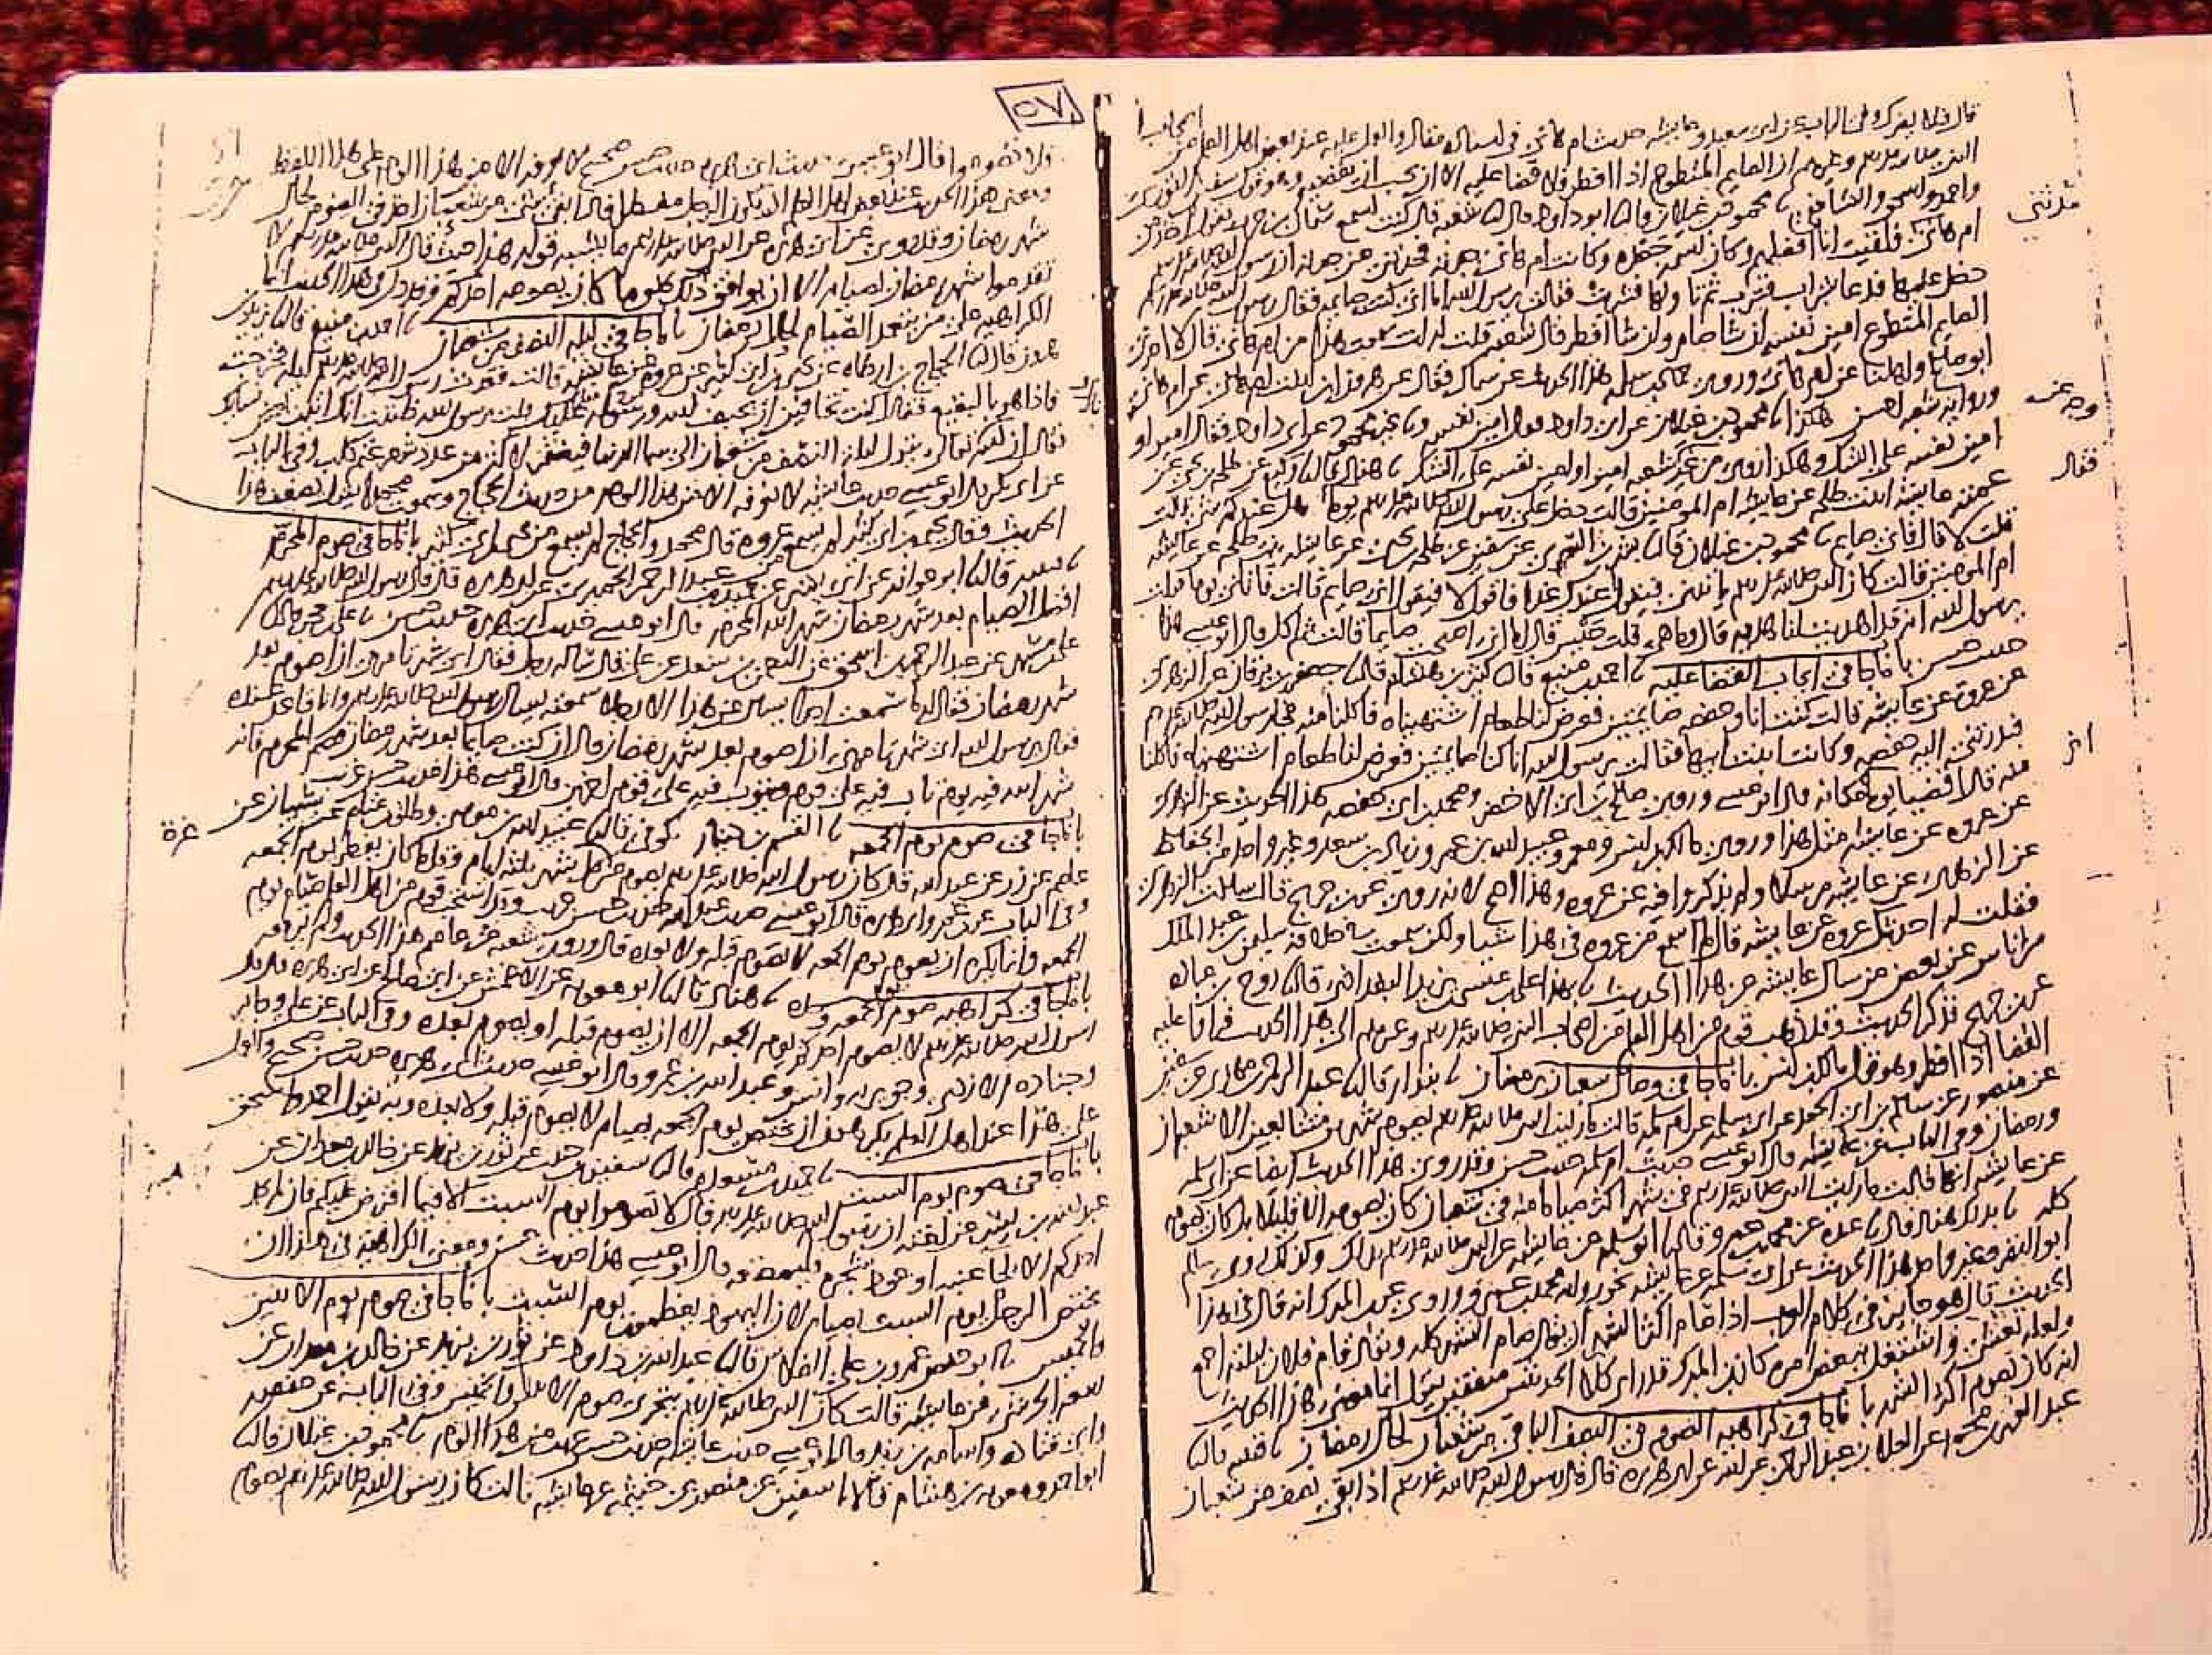 ٥٧
النبي صلى الله عليه وسلم وغيرهم ان الصايم المتطوع اذا افطر فلا قضا عليه الا ان يحب ان يقضيه وهو قول سفين الثوري
واحمد واسحق والشافعي محمود بن غيلان قال ابو داود قال شعبه قال كنت اسمع سماك بن حرب يقول احد
ام هانئ فلقيت انا افضلهم وكان اسمه جعده وكانت ام هانئ جدته فحدثني عن جدته ان رسول الله صلى الله عليه وسلم
دخل عليها فدعا بشراب فشرب ثم ناولها فشربت فقالت يرسول الله اما اني كنت صايمه فقال رسول الله صلى الله عليه وسلم
الصايم المتطوع امين نفسه ان شا صام وان شا افطر قال شعبه قلت له انت سمعت هذا من ام هانئ قال لا اخبرني
ابو صالح واهلنا عن ام هانئ وروى حماد بن سلمه هذا الحديث عن سماك فقال عن هرون ابن ابنت ام هانئ عن ام هانئ
وروايه شعبه احسن هكذا محمود بن غيلان عن ابي داود فقال امين نفسه وغير محمود عن ابي داود فقال امير او
امين نفسه على الشك وهكذا روي من غير شعبه امير او امين نفسه على الشك هناد قال وكيع عن طلحه بن يحيى عن
عمته عايشه ابنت طلحه عن عايشه ام المومنين قالت دخل علي رسول الله صلى الله عليه وسلم يوما فقال هل عندكم شي قالت
قلت لا قال فاني صايم محمود بن غيلان قال بشر بن السري عن سفين عن طلحه بن يحيى عن عايشه بنت طلحه عن عايشه
ام المومنين قالت كان النبي صلى الله عليه وسلم ياتيني فيقول اعندك غدا فاقول لا فيقول اني صايم قالت فاتاني يوما فقلت
يرسول الله انه قد اهديت لنا هديه قال وما هي قلت حيس قال اما اني اصبحت صايما قالت ثم اكل قال ابو عيسى هذا
حديث حسن باب ما جا في ايجاب القضا عليه احمد بن منيع قال كثير بن هشام قال جعفر بن برقان عن الزهري
عن عروه عن عايشه قالت كنت انا وحفصه صايمتين فعرض لنا طعام اشتهيناه فاكلنا منه فجا رسول الله صلى الله عليه وسلم
فبدرتني اليه حفصه وكانت ابنت ابيها فقالت يرسول الله انا كنا صايمتين فعرض لنا طعام اشتهيناه فاكلنا
منه قال اقضيا يوما مكانه قال ابو عيسى وروى صالح بن ابي الاخضر ومحمد بن ابي حفصه هذا الحديث عن الزهري
عن عروه عن عايشه مثل هذا وروى مالك بن انس ومعمر وعبيد الله بن عمر وزياد بن سعد وغير واحد من الحفاظ
عن الزهري عن عايشه مرسلا ولم يذكروا فيه عن عروه وهذا اصح لانه روي عن ابن جريج قال سالت الزهري
فقلت له احدثك عروه عن عايشه قال لم اسمع من عروه في هذا شيا ولكن سمعت في خلافه سليمن بن عبد الملك
من ناس عن بعض من سال عايشه عن هذا الحديث بهذا علي بن عيسى بن يزيد البغدادي قال روح بن عباده
عن ابن جريج فذكر الحديث وقد ذهب قوم من اهل العلم من اصحاب النبي صلى الله عليه وسلم وغيرهم الى هذا الحديث فراوا عليه
القضا اذا افطر وهو قول مالك بن انس باب ما جا في وصال شعبان برمضان بندار قال عبد الرحمن بن مهدي عن سفين
عن منصور عن سالم بن ابي الجعد عن ابي سلمه عن ام سلمه قالت ما رايت النبي صلى الله عليه وسلم يصوم شهرين متتابعين الا شعبان
ورمضان وفي الباب عن عايشه قال ابو عيسى حديث ام سلمه حديث حسن وقد روي هذا الحديث ايضا عن ابي سلمه
عن عايشه انها قالت ما رايت النبي صلى الله عليه وسلم في شهر اكثر صياما منه في شعبان كان يصومه الا قليلا بل كان يصومه
كله بذلك هناد قال عبده عن محمد بن عمرو قال ابو سلمه عن عايشه عن النبي صلى الله عليه وسلم بذلك وكذلك روى سالم
ابو النضر وغير واحد هذا الحديث عن ابي سلمه عن عايشه نحو روايه محمد بن عمرو وروي عن ابن المبرك انه قال في هذا
الحديث قال هو جايز في كلام العرب اذا صام اكثر الشهر ان يقال صام الشهر كله ويقال قام فلان ليلته اجمع
ولعله تعشى واشتغل ببعض امره كان ابن المبرك قد راى كلا الحديثين متفقين يقول انما معنى هذا الحديث
انه كان يصوم اكثر الشهر باب ما جا في كراهيه الصوم في النصف الباقي من شعبان لحال رمضان قتيبه قال
عبد العزيز بن محمد عن العلا بن عبد الرحمن عن ابيه عن ابي هريره قال قال رسول الله صلى الله عليه وسلم اذا بقي نصف من شعبان
فلا تصوموا قال ابو عيسى حديث ابي هريره حديث حسن صحيح لا نعرفه الا من هذا الوجه على هذا اللفظ
ومعنى هذا الحديث عند بعض اهل العلم ان يكون الرجل مفطرا فاذا بقي شي من شعبان اخذ في الصوم لحال
شهر رمضان وقد روي عن ابي هريره عن النبي صلى الله عليه وسلم ما يشبه قوله هذا حيث قال النبي صلى الله عليه وسلم لا
تقدموا شهر رمضان بصيام الا ان يوافق ذلك صوما كان يصومه احدكم وقد دل في هذا الحديث انما
الكراهيه على من يتعمد الصيام لحال رمضان باب ما جا في ليله النصف من شعبان احمد بن منيع قال يزيد بن
هرون قال الحجاج بن ارطاه عن يحيى بن ابي كثير عن عروه عن عايشه قالت فقدت رسول الله صلى الله عليه وسلم ليله فخرجت
فاذا هو بالبقيع فقال اكنت تخافين ان يحيف الله ورسوله عليك قلت يرسول الله ظننت انك اتيت بعض نسايك
فقال ان الله تعالى ينزل ليله النصف من شعبان الى سما الدنيا فيغفر لاكثر من عدد شعر غنم كلب وفي الباب
عن ابي بكر قال ابو عيسى حديث عايشه لا نعرفه الا من هذا الوجه من حديث الحجاج وسمعت محمدا يقول يضعف هذا
الحديث وقال يحيى بن ابي كثير لم يسمع من عروه قال محمد والحجاج لم يسمع من يحيى بن ابي كثير باب ما جا في صوم المحرم
قتيبه قال ابو عوانه عن ابي بشر عن حميد بن عبد الرحمن الحميري عن ابي هريره قال قال رسول الله صلى الله عليه وسلم
افضل الصيام بعد شهر رمضان شهر الله المحرم قال ابو عيسى حديث ابي هريره حديث حسن علي بن حجر قال
علي بن مسهر عن عبد الرحمن بن اسحق عن النعمن بن سعد عن علي قال ساله رجل فقال اي شهر تامرني ان اصوم بعد
شهر رمضان فقال له ما سمعت احدا يسال عن هذا الا رجلا سمعته يسال رسول الله صلى الله عليه وسلم وانا قاعد عنده
فقال يرسول الله اي شهر تامرني ان اصوم بعد شهر رمضان قال ان كنت صايما بعد شهر رمضان فصم المحرم فانه
شهر الله فيه يوم تاب فيه على قوم ويتوب فيه على قوم اخرين قال ابو عيسى هذا حديث حسن غريب
باب ما جا في صوم يوم الجمعه القسم بن دينار كوفي قال عبيد الله بن موسى وطلق بن غنام عن شيبان عن
عاصم عن زر عن عبد الله قال كان رسول الله صلى الله عليه وسلم يصوم من كل شهر ثلثه ايام وقل ما كان يفطر يوم الجمعه
وفي الباب عن ابن عمر وابي هريره قال ابو عيسى حديث عبد الله حديث حسن غريب وقد استحب قوم من اهل العلم صيام يوم
الجمعه وانما يكره ان يصوم يوم الجمعه لا يصوم قبله ولا بعده قال وروى شعبه عن عاصم هذا الحديث ولم يرفعه
باب ما جا في كراهيه صوم يوم الجمعه وحده هناد قال ابو معويه عن الاعمش عن ابي صالح عن ابي هريره قال قال
رسول الله صلى الله عليه وسلم لا يصوم احدكم يوم الجمعه الا ان يصوم قبله او يصوم بعده وفي الباب عن علي وجابر
وجناده الازدي وجويريه وانس وعبد الله بن عمرو قال ابو عيسى حديث ابي هريره حديث حسن صحيح والعمل
على هذا عند اهل العلم يكرهون ان يختص يوم الجمعه بصيام لا يصوم قبله ولا بعده وبه يقول احمد واسحق
باب ما جا في صوم يوم السبت حميد بن مسعده قال سفين بن حبيب عن ثور بن يزيد عن خالد بن معدان عن
عبد الله بن بسر عن اخته ان رسول الله صلى الله عليه وسلم قال لا تصوموا يوم السبت الا فيما افترض عليكم فان لم يجد
احدكم الا لحا عنبه او عود شجره فليمضغه قال ابو عيسى هذا حديث حسن ومعنى الكراهيه في هذا ان
يختص الرجل يوم السبت بصيام لان اليهود يعظمون يوم السبت باب ما جا في صوم يوم الاثنين
والخميس ابو حفص عمرو بن علي الفلاس قال عبد الله بن داود عن ثور بن يزيد عن خالد بن معدان عن
ربيعه الجرشي عن عايشه قالت كان النبي صلى الله عليه وسلم يتحرى صوم الاثنين والخميس وفي الباب عن حفصه
وابي قتاده واسامه بن زيد قال ابو عيسى حديث عايشه حديث حسن غريب من هذا الوجه محمود بن غيلان قال
ابو احمد ومعويه بن هشام قالا سفين عن منصور عن خيثمه عن عايشه قالت كان رسول الله صلى الله عليه وسلم يصوم